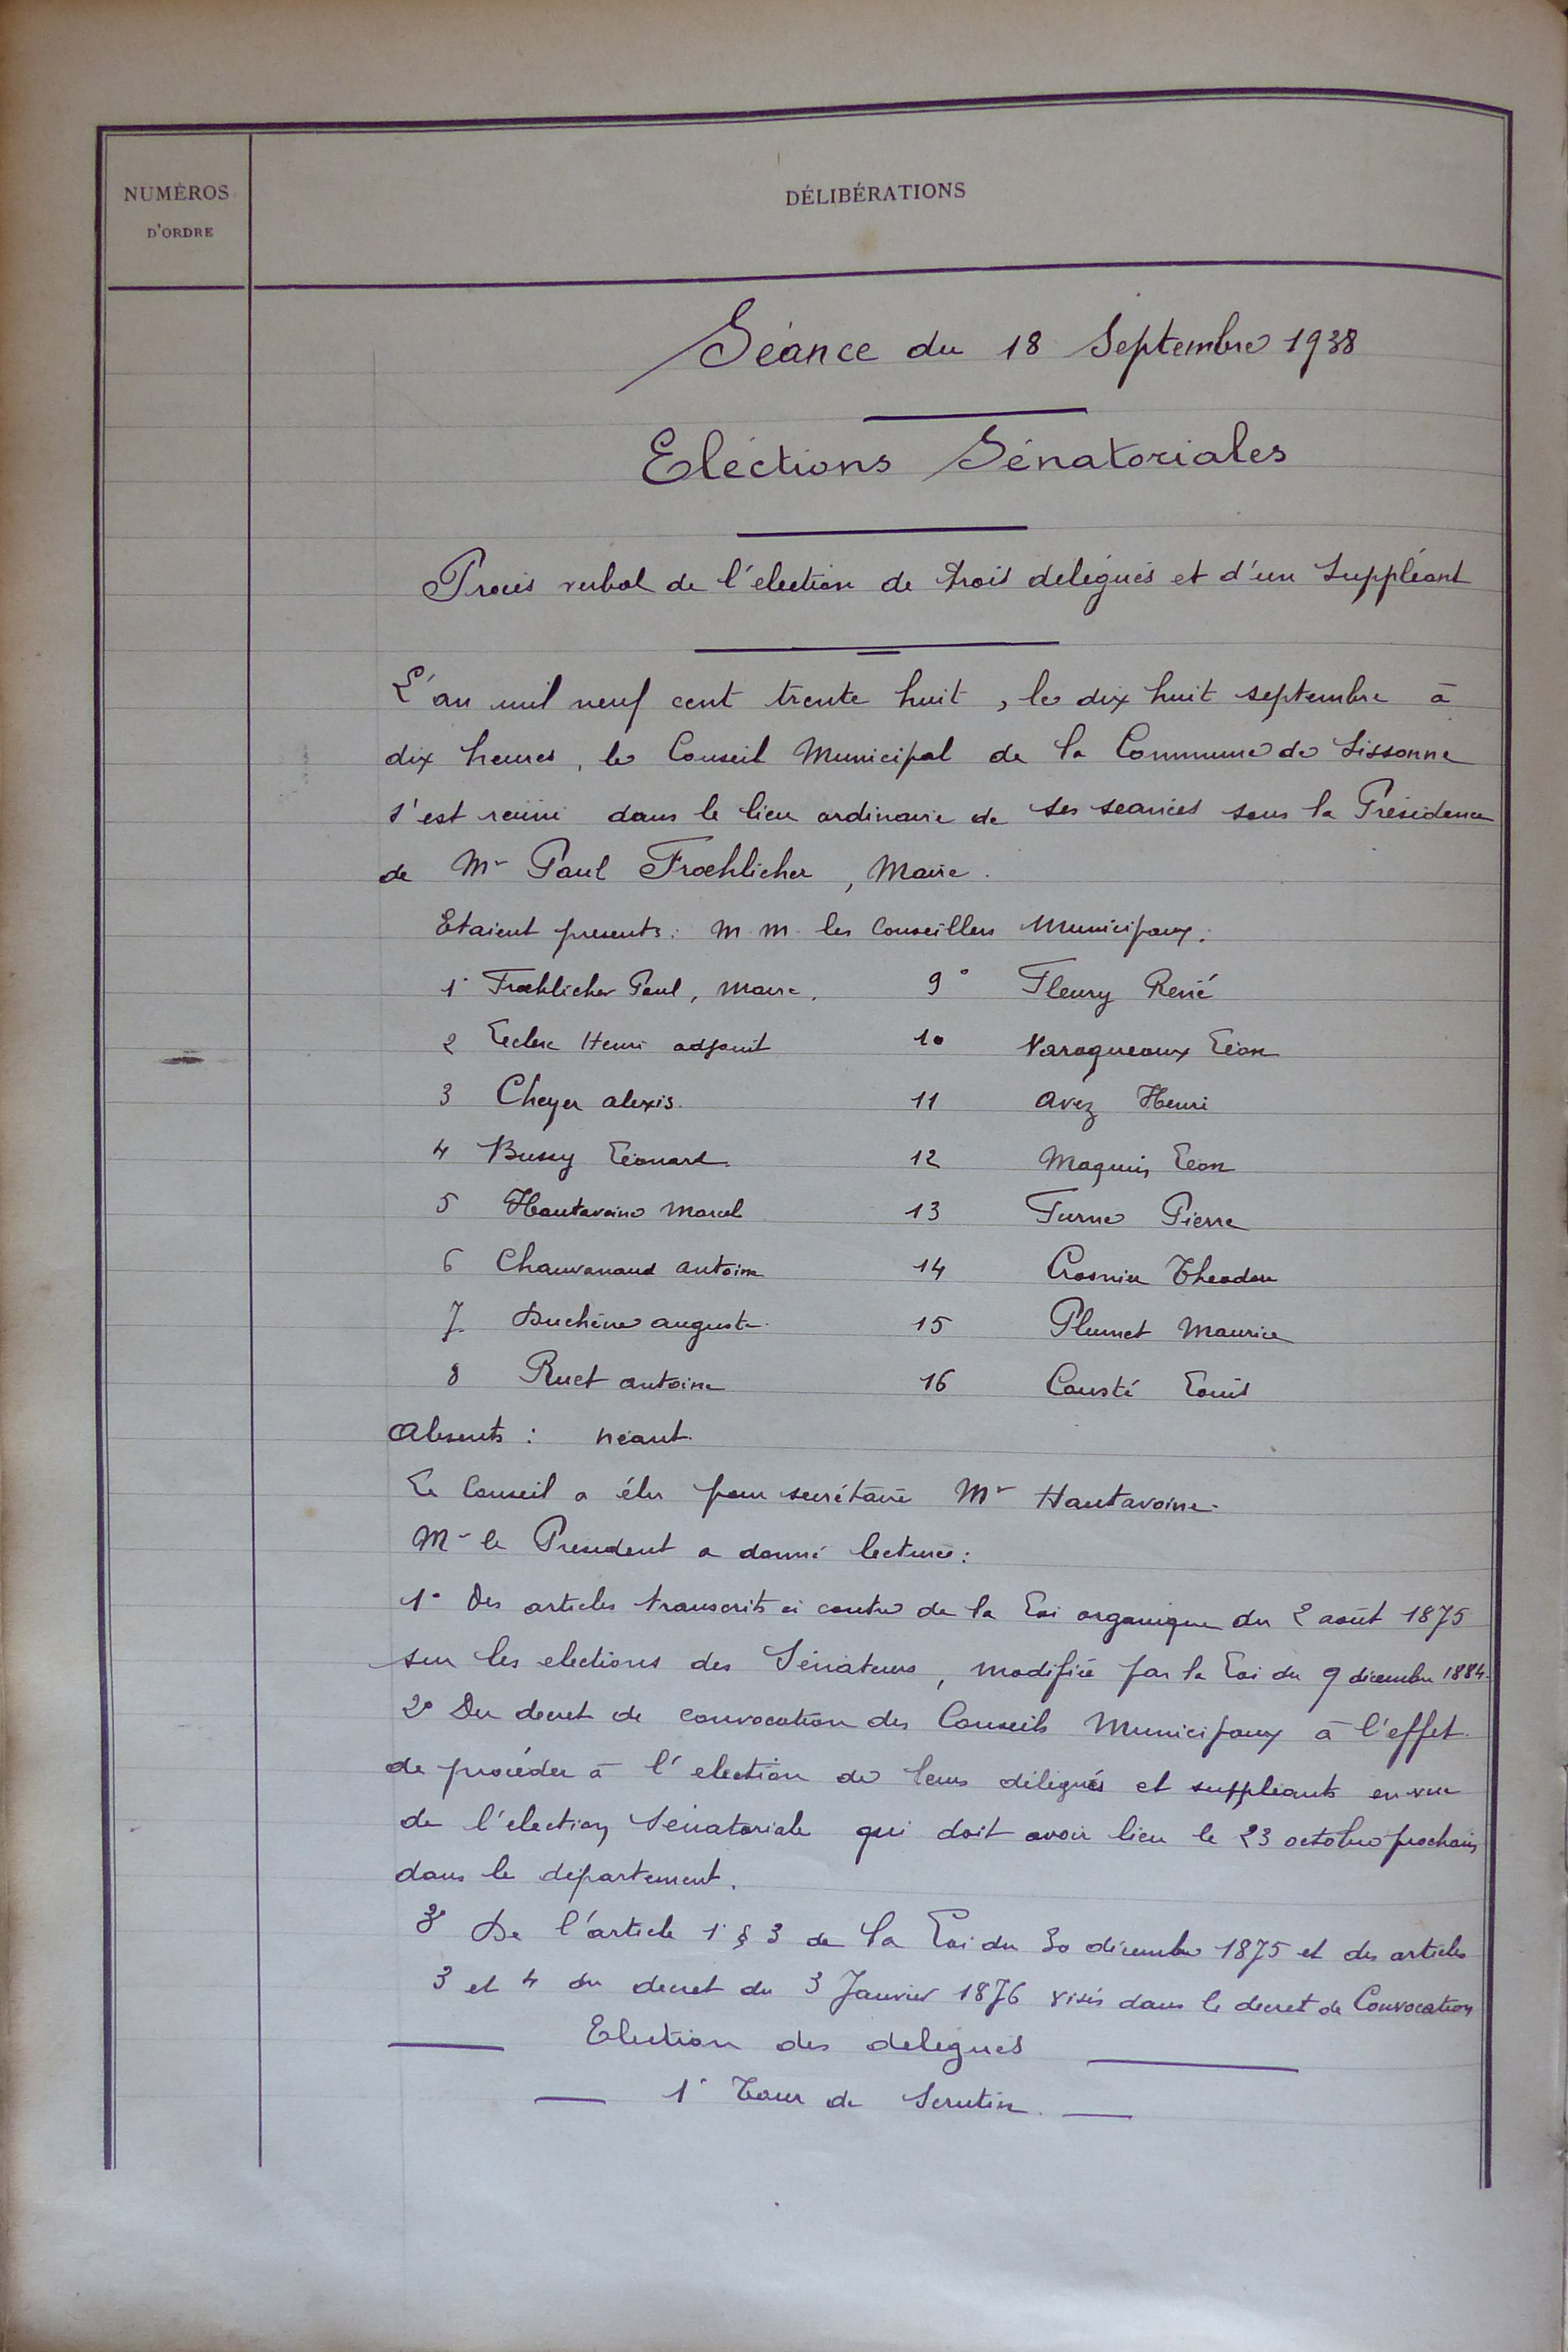 NUMÉROS
D'ORDRE
DÉLIBÉRATIONS
Séance du 18 Septembre 1938
Eléctions Sénatoriales
Procès verbal de l'election de trois délégués et d'un Suppléant
L'an mil neuf cent trente huit, le dix huit septembre à
dix heures, le Conseil Municipal de la Commune de Sissonne
s'est réuni dans le lieu ordinaire de ses séances sous la Présidence
de Mr Paul Froehlicher, Maire.
Etaient presents: M.M. les Conseillers Municipaux:
1° Froehlicher Paul, Maire. 9° Fleury René
2 Leclerc Henri adjoint 10 Varoqueaux Léon
3 Cheyer alexis. 11 Avez Henri
4 Bussy Léonard. 12 Maquin Léon
5 Hautavoine Marcel 13 Turne Pierre
6 Chauvanaud antoine 14 Crosnier Theodore
7 Duchêne auguste 15 Plumet Maurice
8 Ruet antoine 16 Cousté Louis
Absents: néant.
Le Conseil a élu pour secrétaire Mr Hautavoine.
Mr le President a donné lecture:
1° Des articles transcrits ci contre de la Loi organique du 2 août 1875
sur les elections des Sénateurs, modifiée par la Loi du 9 décembre 1884.
2° Du decret de convocation des Conseils Municipaux à l'effet
de procéder à l'election de leurs délégués et suppleants en vue
de l'élection Sénatoriale qui doit avoir lieu le 23 octobre prochain
dans le département.
3° De l'article 1° § 3 de la Loi du 30 décembre 1875 et des articles
3 et 4 du decret du 3 Janvier 1876 visés dans le decret de Convocation
Election des délégués
1° Tour de Scrutin.